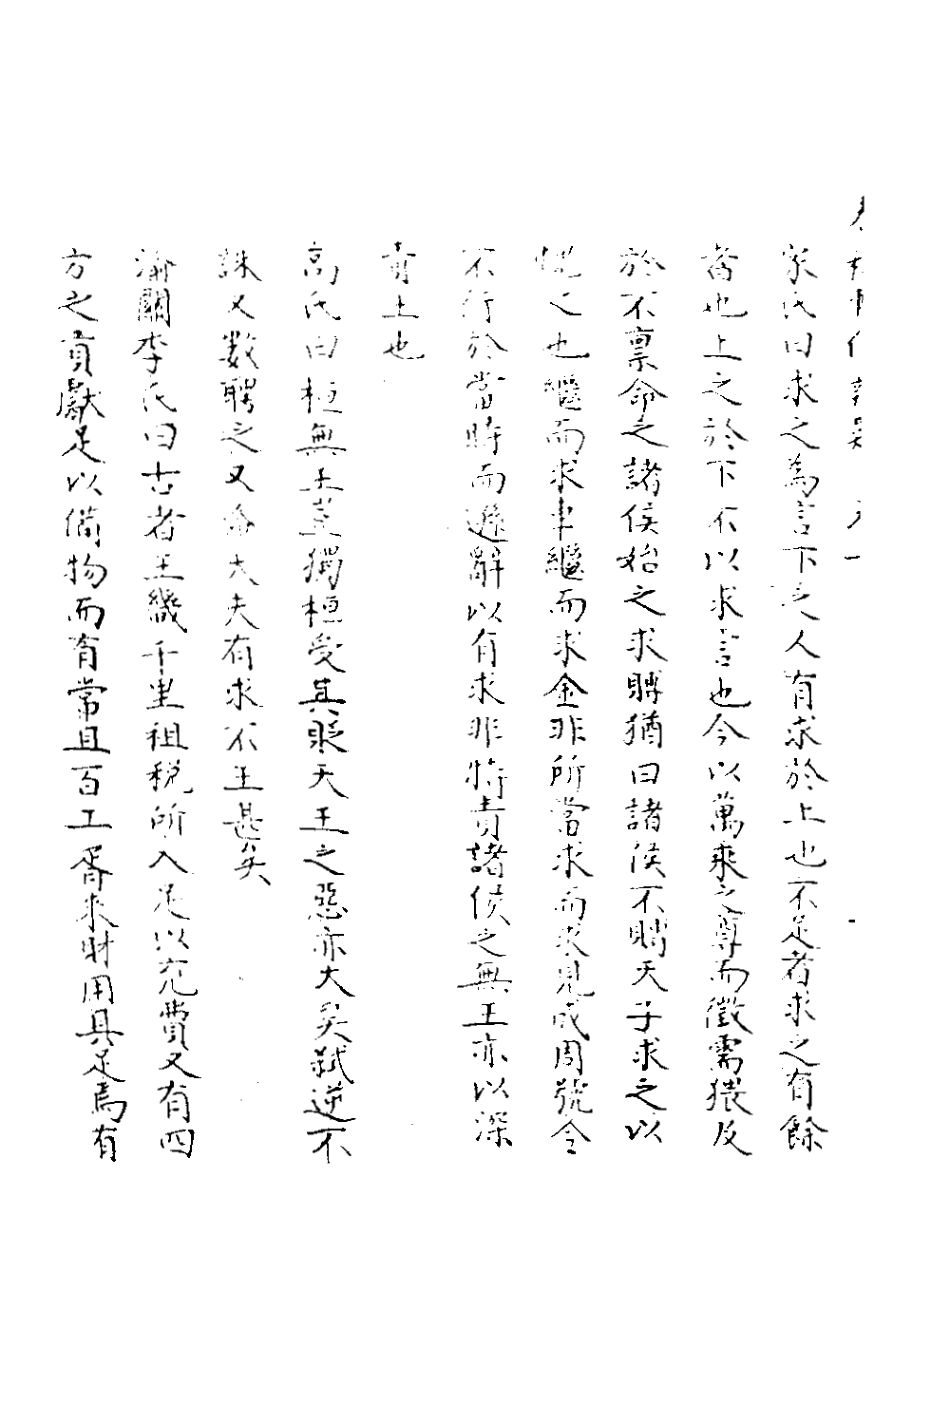 家氏曰求之為言下之人有求於上也不足者求之有餘
者也上之於下不以求言也今以萬乘之尊而徵需猥及
於不稟命之諸侯始之求賻猶曰諸侯不賻天子求之以
愧之也繼而求車繼而求金非所當求而求見成周號令
不行於當時而遜辭以有求非特責諸侯之無王亦以深
責上也
高氏曰桓無王豈獨桓受其貶天王之惡亦大矣弑逆不
誅又數聘之又為大夫有求不王甚矣
渝關李氏曰古者王畿千里租稅所入足以充費又有四
方之貢獻足以備物而有常且百工胥來財用具足焉有